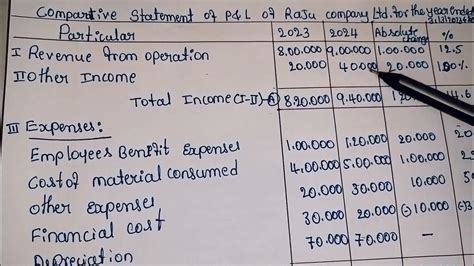 Compartive Statement of P&L of Raju company Ltd. for the year Ended
Particular 2023 2024 Absolute change %
I Revenue from operation 8,00.000 9,00.000 1,00.000 12.5
II Other Income 20.000 40000 20.000 100%
Total Income (I-II)-A 8,20.000 9,40.000
III Expenses:
Employees Benifit Expenses 1,00.000 1,20.000 20.000
Cost of material consumed 4,00.000 5,00.000 1,00.000
Other Expenses 20.000 30.000 10.000
Financial cost 30.000 20.000 (-) 10,000
Depreciation 70.000 70,000 —